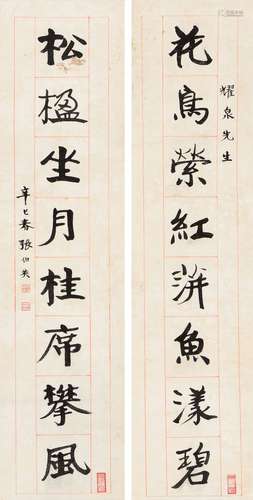 耀泉先生
花鳥縈紅蓱魚漾碧
松楹坐月桂席攀風
辛巳春張伯英